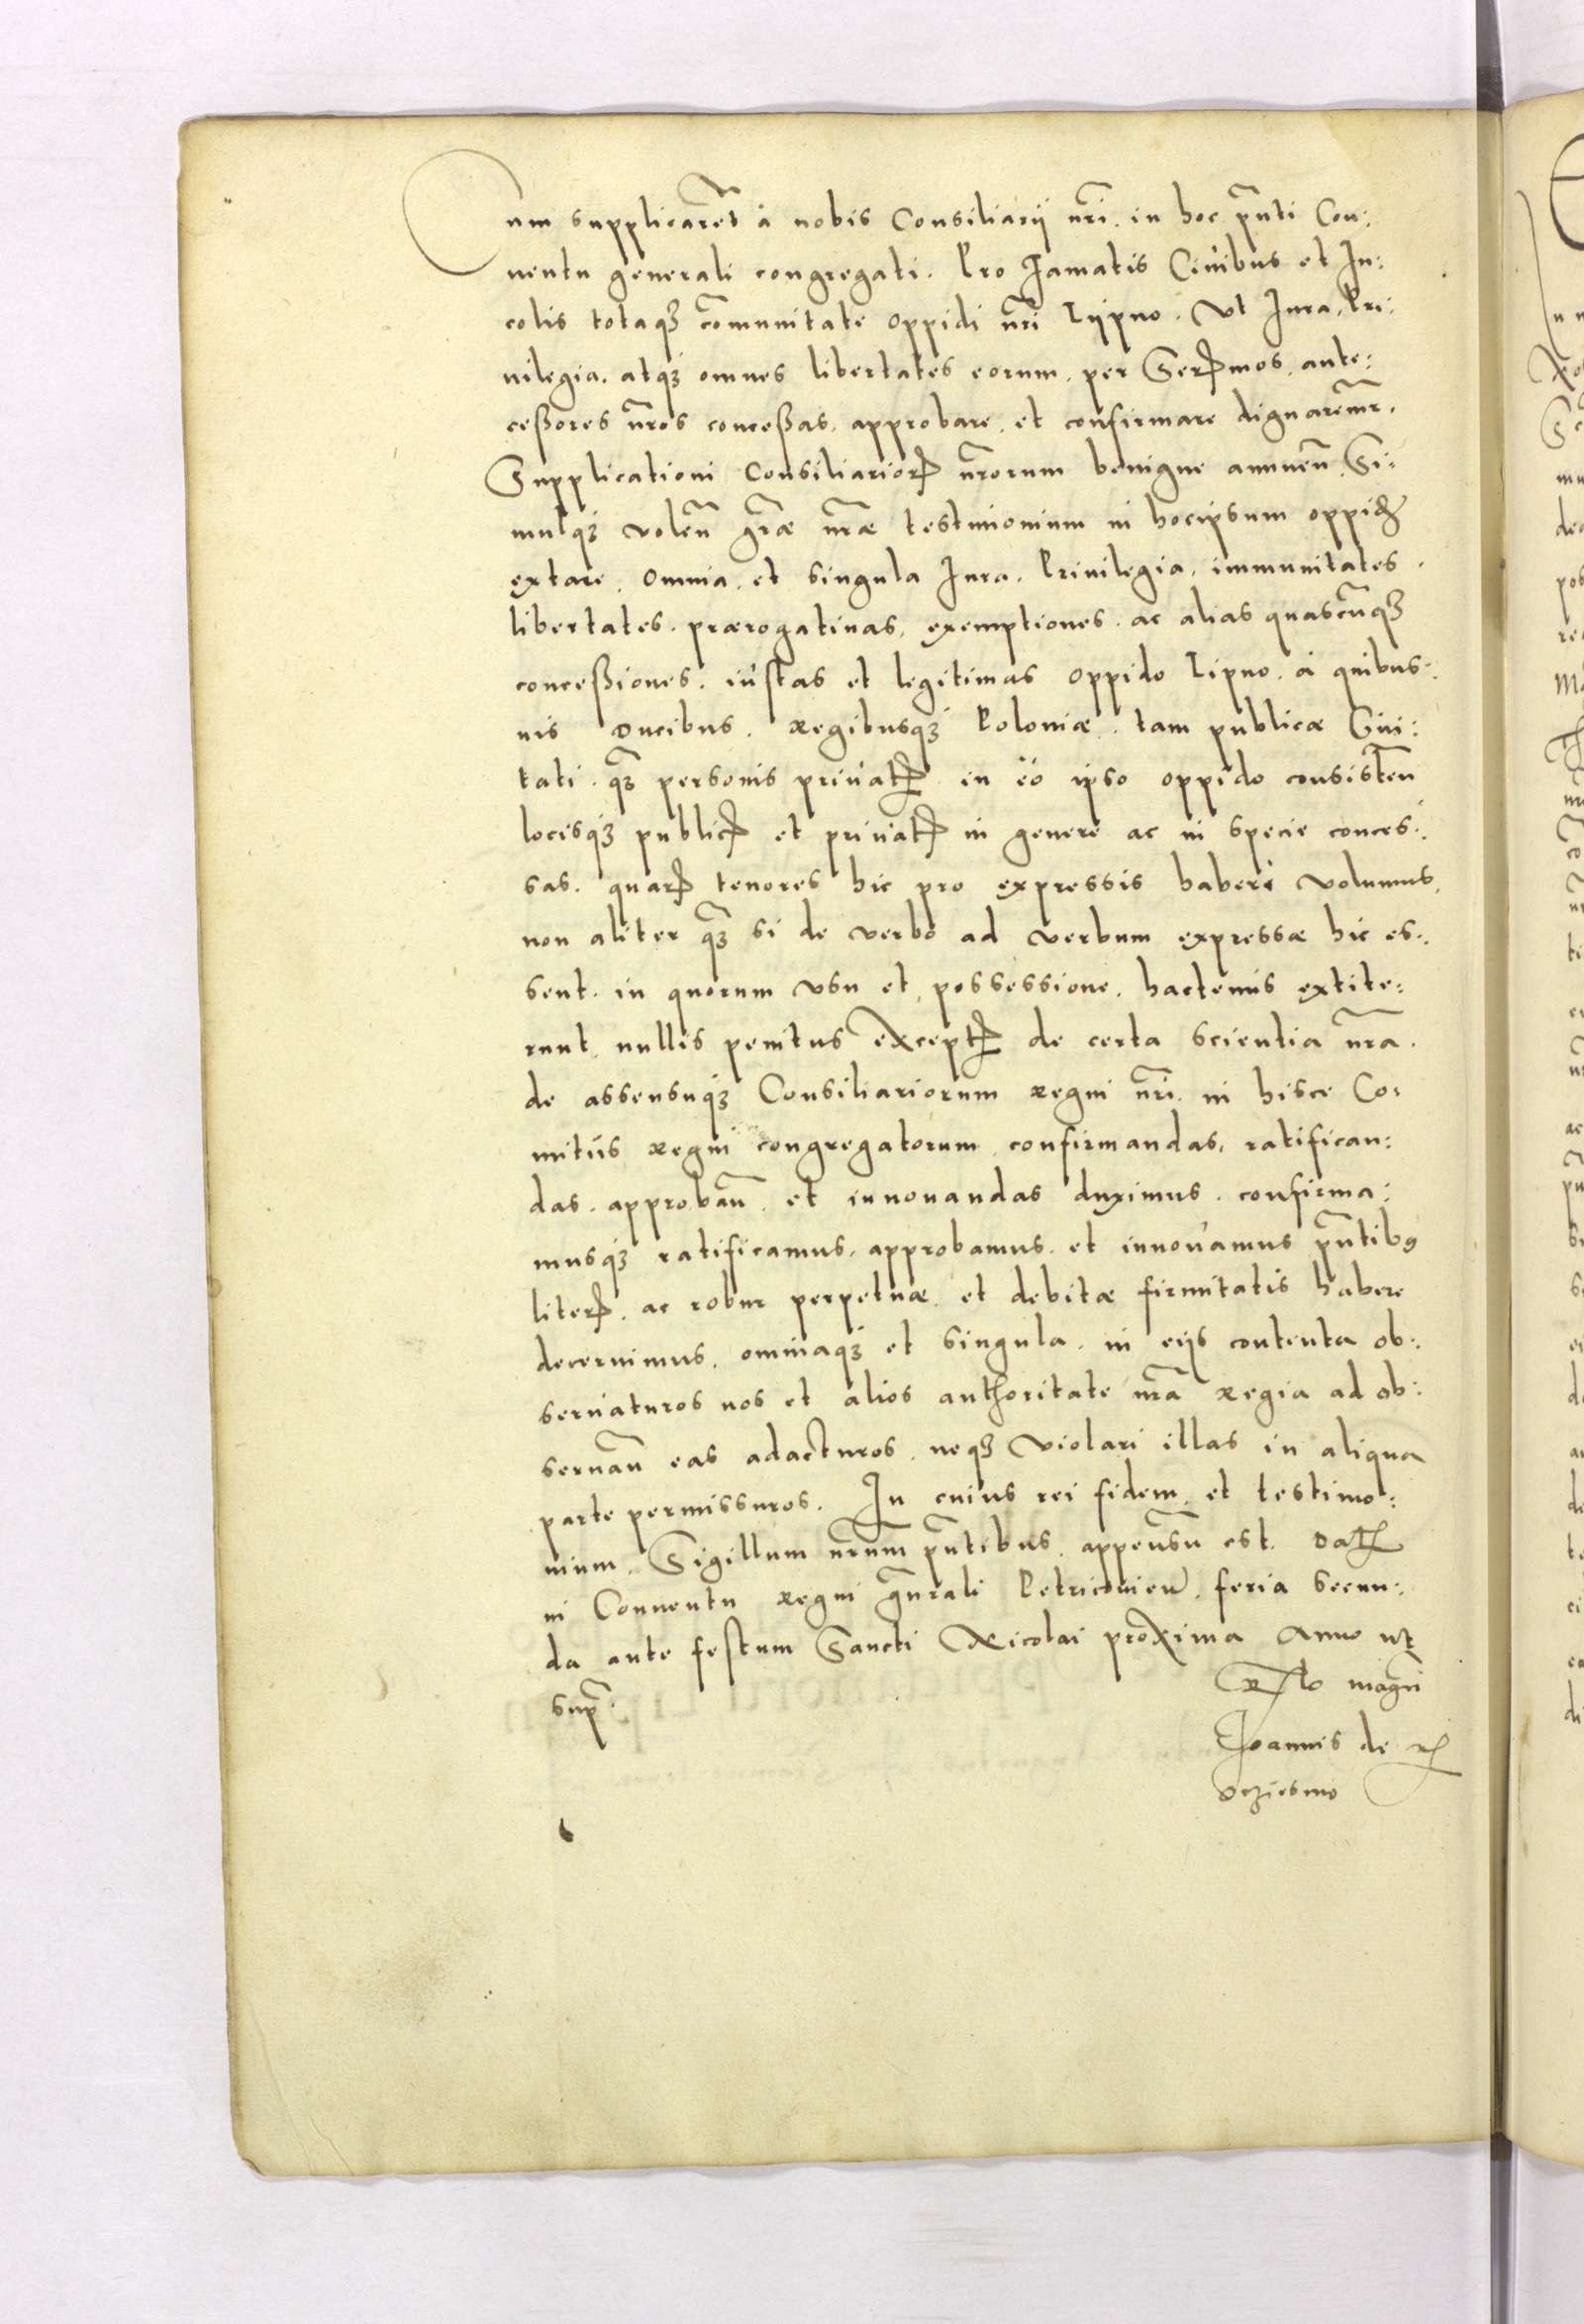 Cum supplicarēt à nobis Consiliarij nr̃i. in hoc p̃nti Con:
uentu generali congregati. Pro Famatis Ciuibus et In:
colis totaqꝫ cõmunitate oppidi nr̃i Lijpno. Vt Iura, Pri:
uilegia, atqꝫ omnes libertates eorum, per Serꝭmos, ante:
ceßores nr̃os conceßas, approbare, et confirmare dignaremr̃.
Supplicationi Consiliariorꝝ nr̃orum benigne annuen̄. Si:
mulqꝫ volen̄ gr̃æ nr̃æ testimonium in hocipsum oppidꝫ
extare. Omnia, et singula Iura, Priuilegia, immunitates,
libertates, prærogatiuas, exemptiones, ac alias quascũqꝫ
conceßiones, iustas et legitimas oppido Lipno, à quibus:
uis Ducibus, Regibusqꝫ Poloniæ, tam publicæ Ciui:
tati, qꝫ̃ personis priuatꝭ in eo ipso oppido consisten̄
locisqꝫ publicꝭ et priuatꝭ in genere ac in specie conces:
sas, quarꝝ tenores hic pro expressis haberi volumus,
non aliter qꝫ̃ si de verbo ad verbum expressæ hic es:
sent. in quorum vsu et possessione, hactenus extite:
runt, nullis penitus exceptꝭ de certa scientia nr̃a,
de assensuqꝫ Consiliariorum Regni nr̃i in hisce Co:
mitijs Regni congregatorum, confirmandas, ratifican:
das, approban̄, et innouandas duximus, confirma:
musqꝫ ratificamus, approbamus, et innouamus p̃ntibꝯ
literꝭ, ac robur perpetuæ, et debitæ firmitatis habere
decernimus, omniaqꝫ et singula, in eijs contenta ob:
seruaturos nos et alios authoritate nr̃a Regia ad ob:
seruan̄ eas adacturos, neqꝫ violari illas in aliqua
parte permissuros. In cuius rei fidem, et testimo:
nium, Sigillum nr̃um p̃ntibus, appensũ est. Datꝭ
in Conuentu Regni gñrali Petricouien̄, feria secun:
da ante festum Sancti Nicolai proxima Anno ut
supᷓ.
Rꝭlo magn̄i
Joannis de
Oczieszno